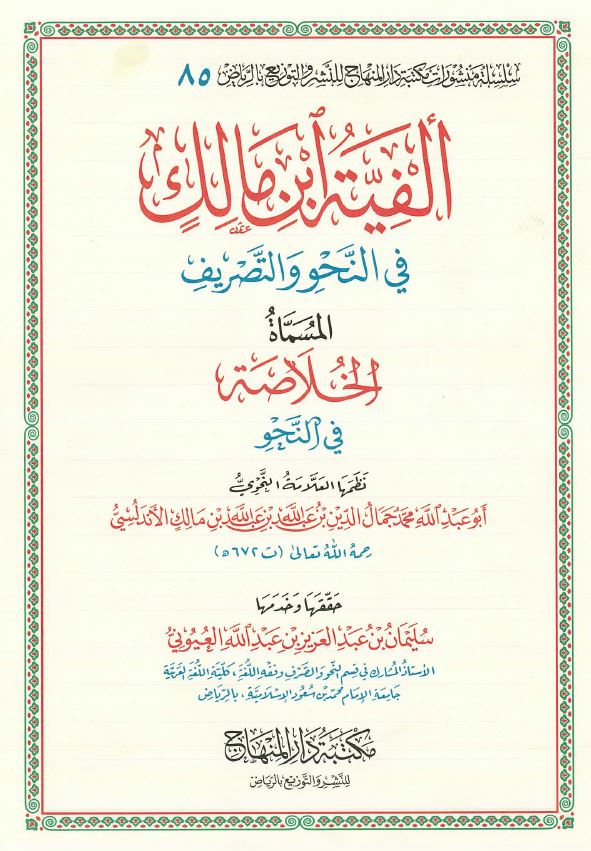 سِلْسِلَةُ مَنْشُورَاتِ مَكْتَبَةِ دَارِ المِنْهَاجِ لِلنَّشْرِ وَالتَّوْزِيعِ بِالرِّيَاضِ ٨٥
أَلْفِيَّةُ ٱبْنِ مَالِكٍ
فِي النَّحْوِ وَالتَّصْرِيفِ
المُسَمَّاةُ
الخُلَاصَة
فِي النَّحْوِ
نَظَمَهَا العَلَّامَةُ النَّحْوِيُّ
أَبُو عَبْدِ ٱللَّهِ مُحَمَّد جَمَالُ الدِّينِ بْنُ عَبْدِ ٱللَّهِ بْنِ عَبْدِ ٱللَّهِ بْنِ مَالِكٍ الأَنْدَلُسِيُّ
رحمهُ اللهُ تعالى (ت ٦٧٢هـ)
حَقَّقَهَا وَخَدَمَهَا
سُلَيْمَانُ بْنُ عَبْدِ العَزِيزِ بْنِ عَبْدِ ٱللَّهِ العُيُونِيُّ
الأستاذُ المُشَارك في قِسم النَّحْو وَالصَّرْفِ وَفِقْهِ اللُّغَةِ، كليَّةِ اللُّغَةِ العَرَبِيَّةِ
جَامِعَة الإمَام مُحَمَّد بن سُعُود الإسْلَامِيَّةِ، بِالرِّيَاض
مَكْتَبَةُ دَارِ المِنْهَاجِ
لِلنَّشْرِ وَالتَّوْزِيعِ بِالرِّيَاضِ